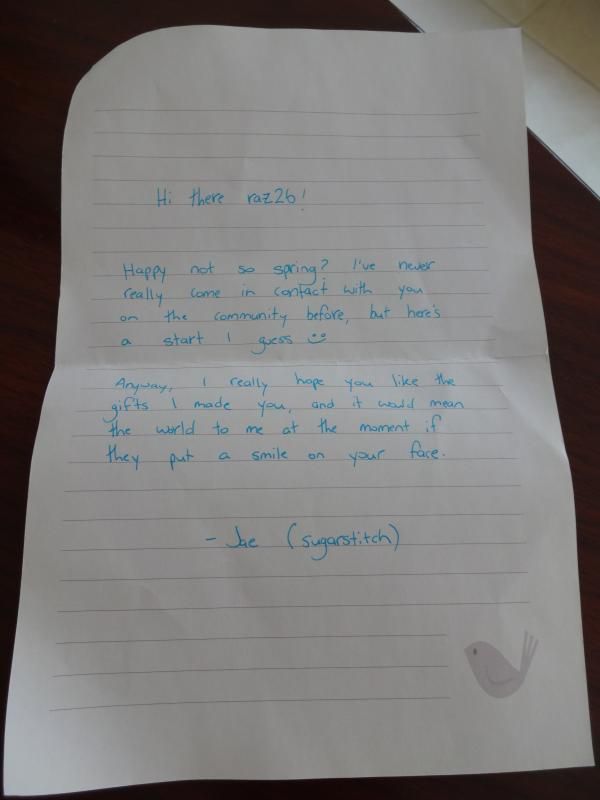 Hi there raz26!
Happy not so spring? I've never
really come in contact with you
on the community before, but here's
a start I guess :)
Anyway, I really hope you like the
gifts I made you, and it would mean
the world to me at the moment if
they put a smile on your face.
- Jae (sugarstitch)